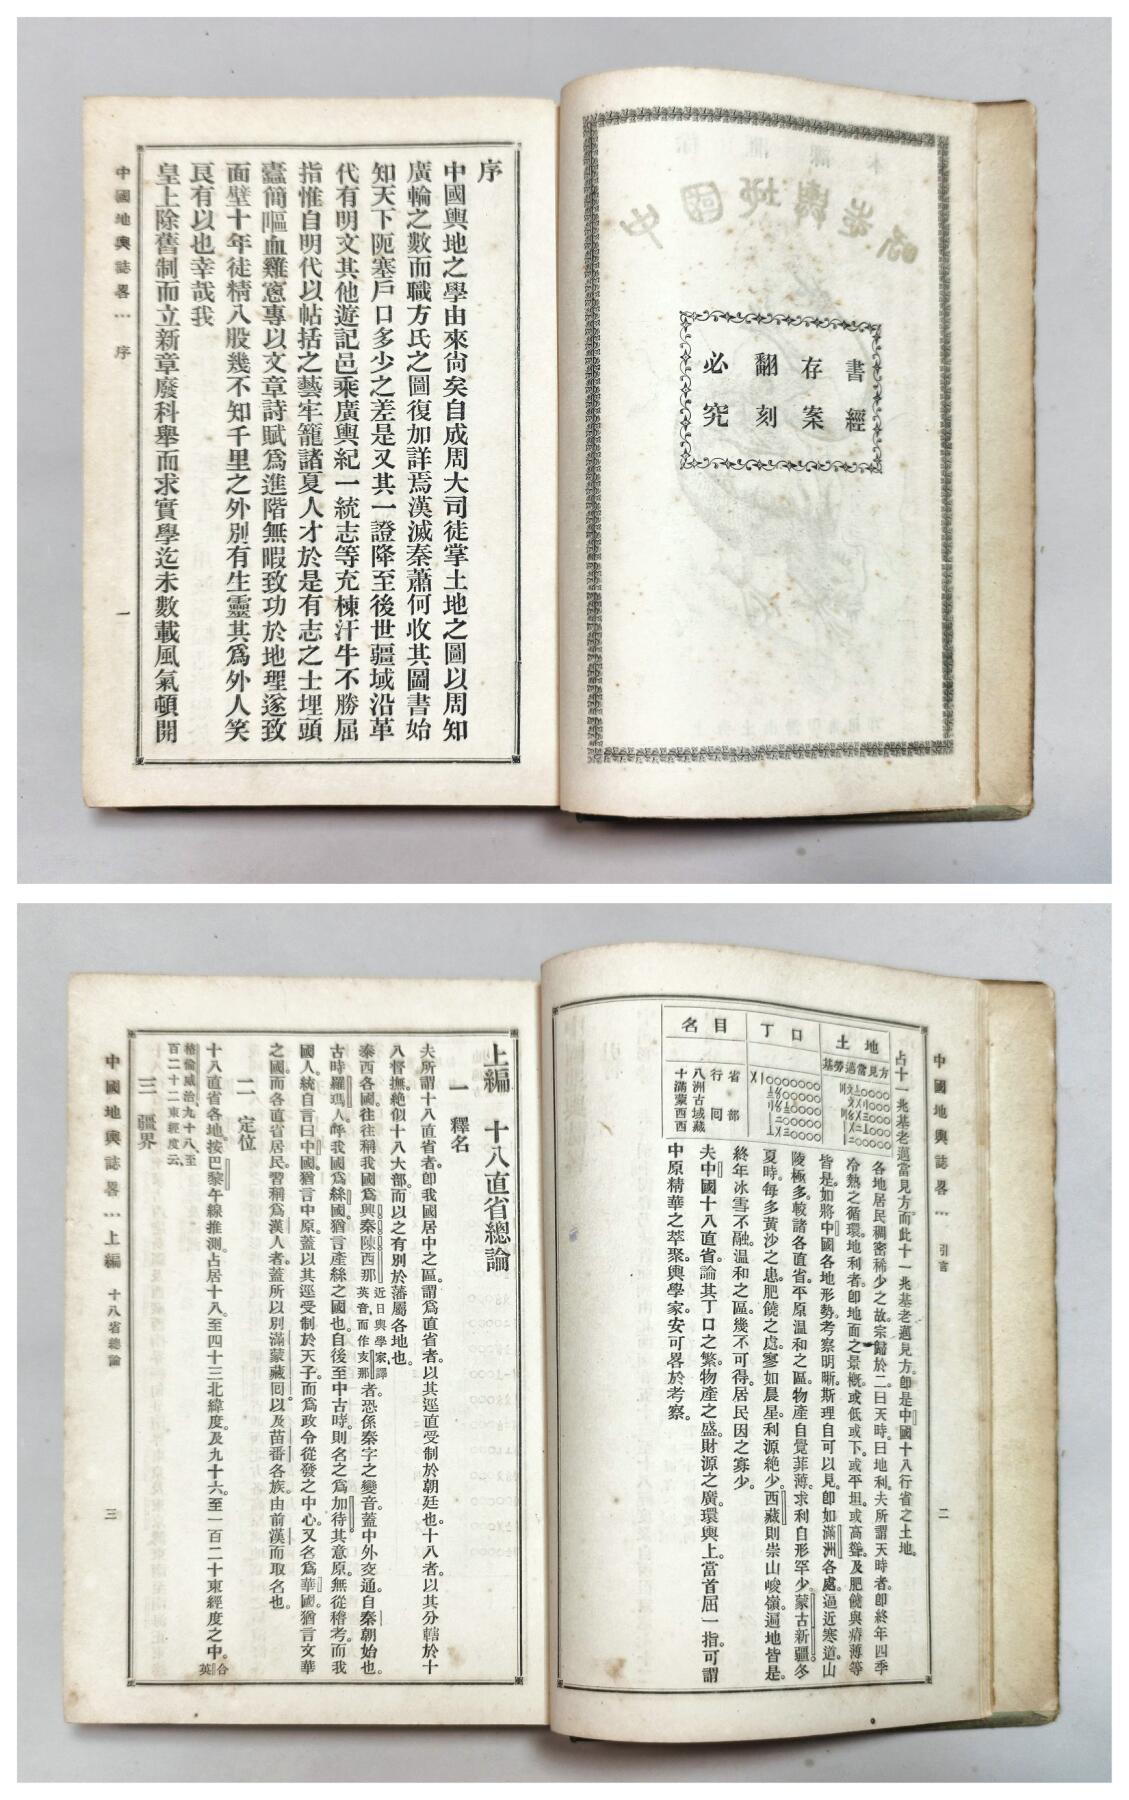 書經
存案
翻刻
必究
序
中國輿地之學由來尙矣自成周大司徒掌土地之圖以周知
廣輪之數而職方氏之圖復加詳焉漢滅秦蕭何收其圖書始
知天下阨塞戶口多少之差是又其一證降至後世疆域沿革
代有明文其他遊記邑乘廣輿紀一統志等充棟汗牛不勝屈
指惟自明代以帖括之藝牢籠諸夏人才於是有志之士埋頭
蠹簡嘔血雞窻專以文章詩賦爲進階無暇致功於地理遂致
面壁十年徒精八股幾不知千里之外別有生靈其爲外人笑
良有以也幸哉我
皇上除舊制而立新章廢科舉而求實學迄未數載風氣頓開
中國地輿誌畧… 序
一
中國地輿誌畧… 引言
二
占十一兆基老邁當見方。而此十一兆基老邁見方。卽是中國十八行省之土地。
各地居民稠密稀少之故。宗歸於二。曰天時。曰地利。夫所謂天時者。卽終年四季
冷熱之循環。地利者。卽地面之景概。或低或下。或平坦。或高聳。及肥饒與瘠薄等
皆是。如將中國各地形勢。考察明晰。斯理自可以見。卽如滿洲各處。逼近寒道。山
陵極多。較諸各直省。平原溫和之區。物產自覺菲薄。求利自形罕少。蒙古新疆。冬
夏時。每多黃沙之患。肥饒之處。寥如晨星。利源絶少。西藏則崇山峻嶺。遍地皆是。
終年冰雪不融。溫和之區。幾不可得。居民因之寡少。
夫中國十八直省。論其丁口之繁。物產之盛。財源之廣。環輿上。當首屈一指。可謂
中原精華之萃聚。輿學家安可畧於考察。
土地
方見當邁勞基
丁口
名目
省部
行囘
八洲古域藏
十滿蒙西西
上編 十八直省總論
一 釋名
夫所謂十八直省者。卽我國居中之區。謂爲直省者。以其逕直受制於朝廷也。十八者。以其分轄於十
八督撫。絶似十八大部。而以之有別於藩屬各地也。
泰西各國。往往稱我國爲興秦陳西那近日輿學家。譯英音。而作支那者。恐係秦字之變音。蓋中外交通。自秦朝始也。
古時羅瑪人。呼我國爲絲國。猶言產絲之國也。自後至中古時。則名之爲加待。其意原無從稽考。而我
國人。統自言曰中國。猶言中原。蓋以其逕受制於天子。而爲政令從發之中心。又名爲華國。猶言文華
之國。而各直省居民。習稱爲漢人者。蓋所以別滿蒙藏囘。以及苗番各族。由前漢而取名也。
二 定位
十八直省各地。按巴黎午線推測。占居十八。至四十三北緯度。及九十六。至一百二十東經度之中。合英
格倫威治。九十八至
百二十二東經度云。
三 疆界
中國地輿誌畧… 上編 十八省總論
三